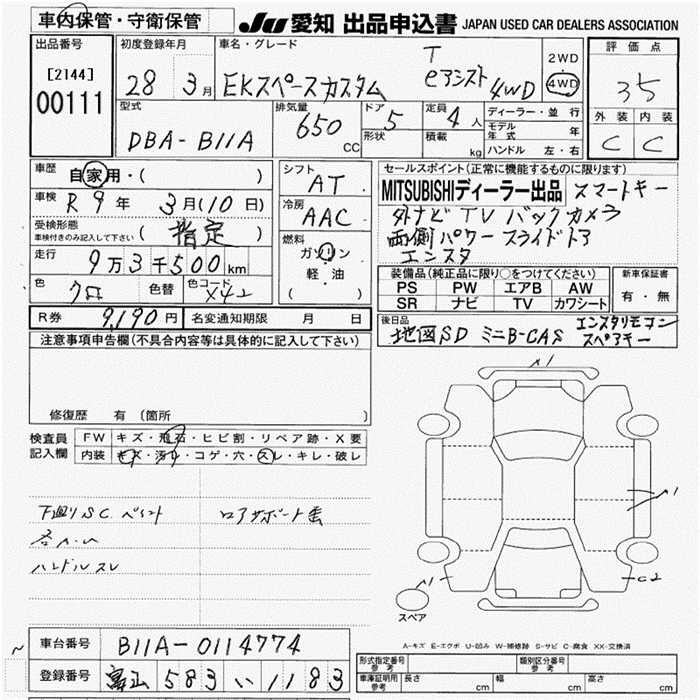 車内保管・守衛保管
JU 愛知 出品申込書 JAPAN USED CAR DEALERS ASSOCIATION
出品番号
[2144]
00111
初度登録年月
28 3月
車名・グレード
EKスペースカスタム T eアシスト 4WD
2WD
4WD
評価点
35
外装 内装
C C
型式
DBA-B11A
排気量
650 CC
ドア 5
形状
定員 4人
積載 kg
ディーラー・並行
モデル年式 年
ハンドル 左・右
車歴 自家用・( )
車検 R9年 3月(10日)
受検形態
車検付きのみ記入して下さい (指定)
走行 9万3千500km
色 クロ 色替 色コード X42
シフト AT
冷房 AAC
燃料
ガソリン
軽油
( )
セールスポイント(正常に機能するものに限ります)
MITSUBISHIディーラー出品 スマートキー
外ナビ TV バックカメラ
両側パワースライドドア
エンスタ
装備品(純正品に限り○をつけてください)
PS PW エアB AW
SR ナビ TV カワシート
新車保証書
有・無
R券 9,190円 名変通知期限 月 日
後日品 地図SD ミニB-CAS エンスタリモコン
スペアキー
注意事項申告欄(不具合内容等は具体的に記入して下さい)
修復歴 有(箇所
検査員
記入欄
FW キズ・飛石・ヒビ割・リペア跡・X要
内装 キズ・汚れ・コゲ・穴・スレ・キレ・破レ
下廻りSC ペイント
ロアサポート
ハンドルスレ
スペア
C2
A-キズ E-エクボ U-凹み W-補修跡 S-サビ C-腐食 XX-交換済
車台番号 B11A-0114774
登録番号 富山 583 い 1183
形式指定番号
参考
類別区分番号
参考
車庫証明用
参考
長さ cm 幅 cm 高さ cm